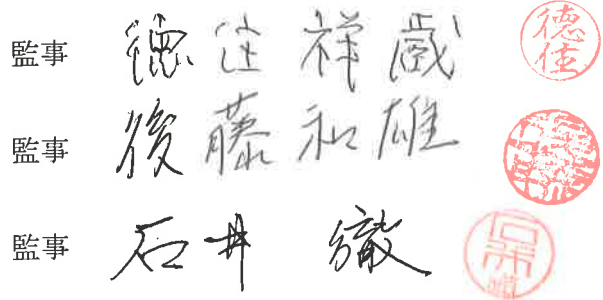 監事 徳住祥蔵 徳住
監事 後藤和雄
監事 石井徹